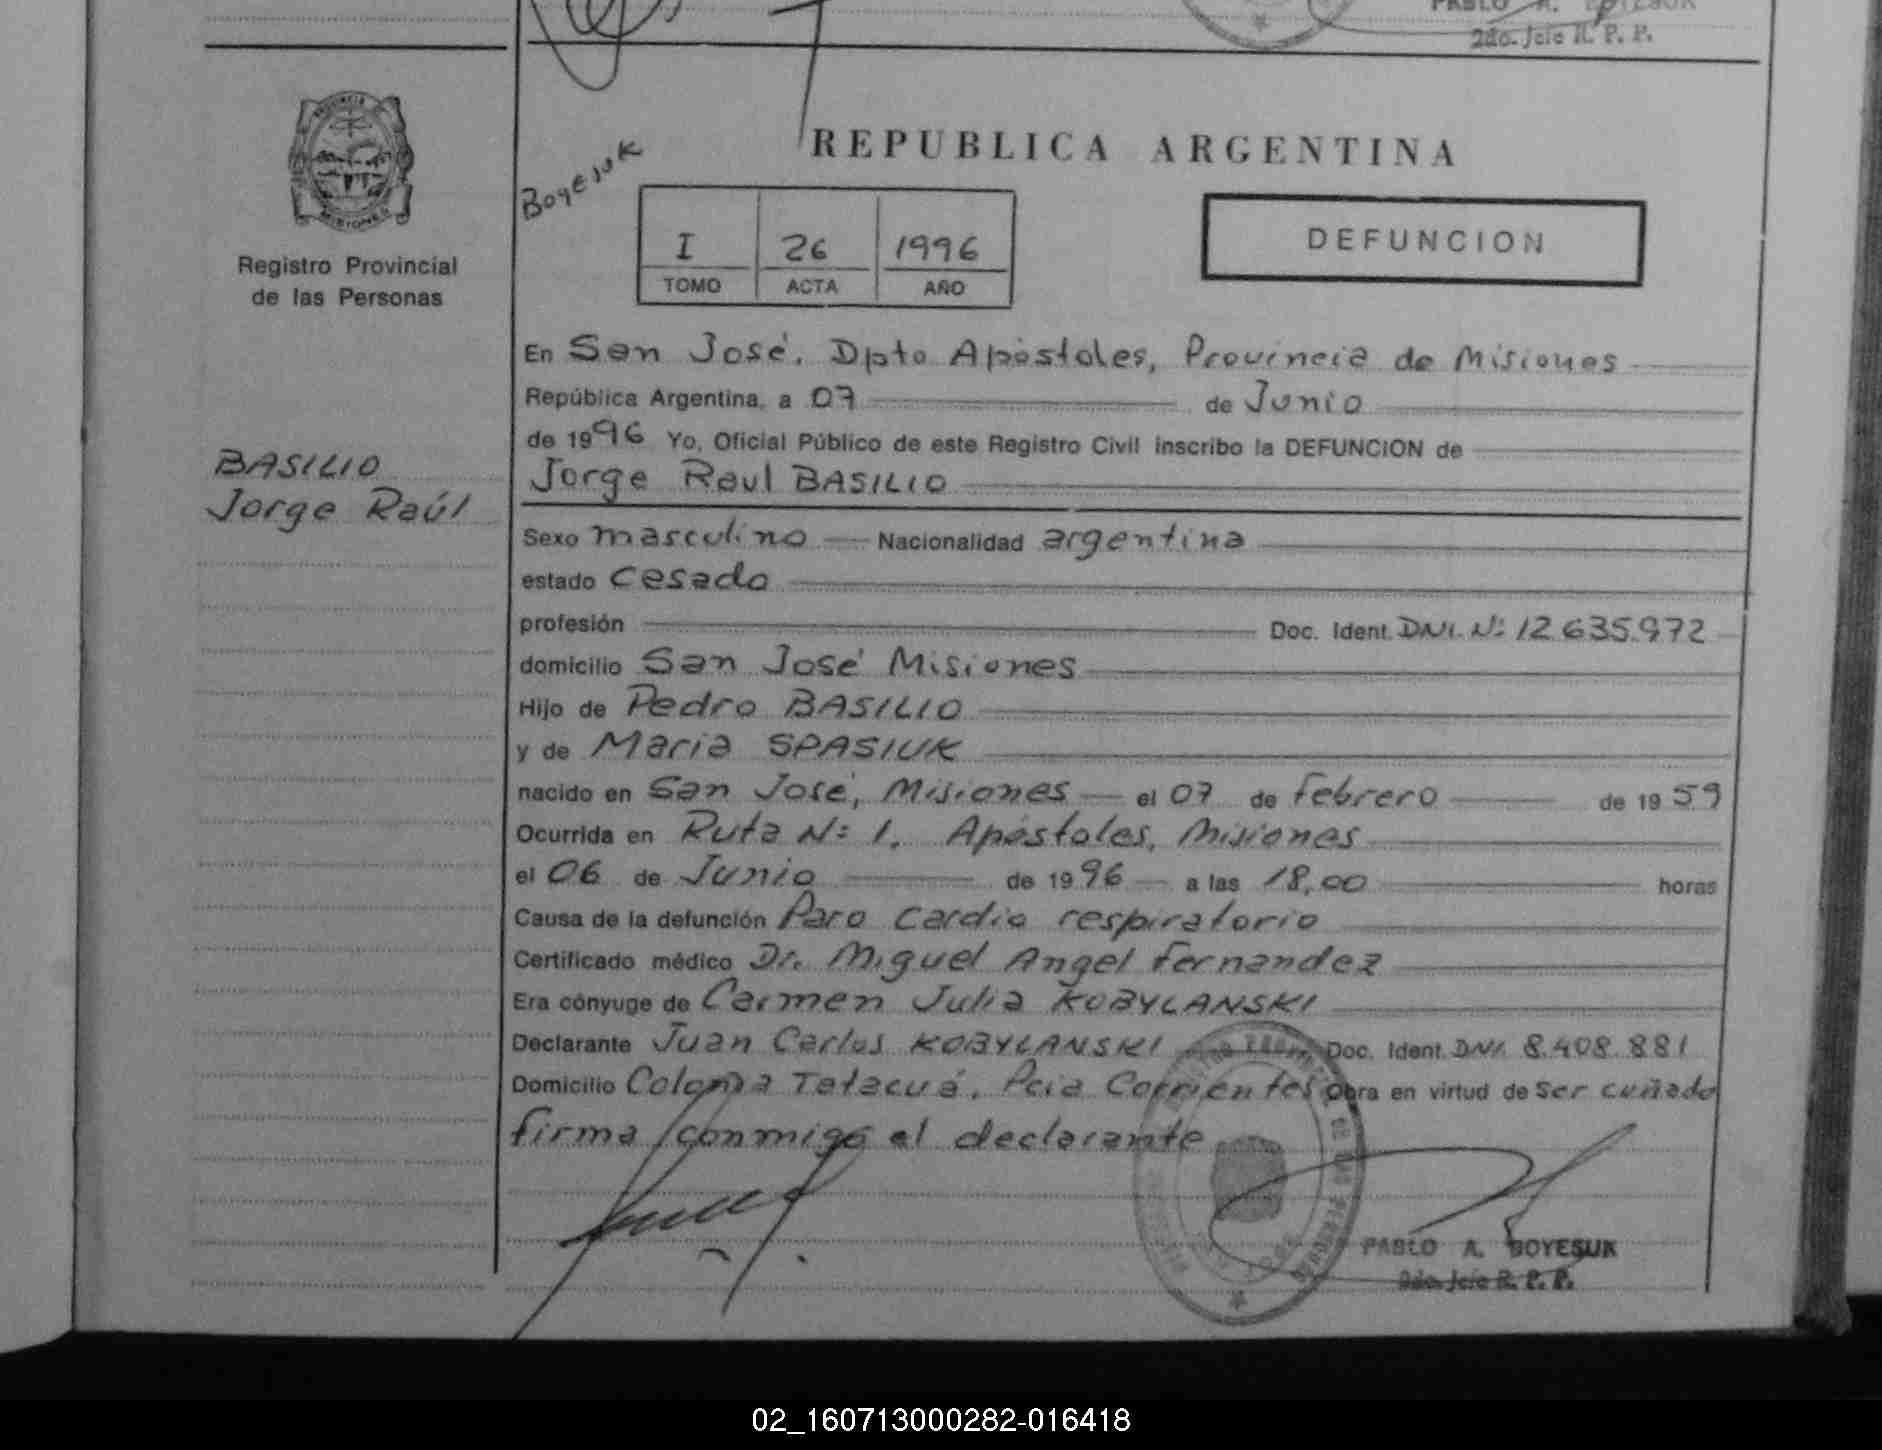 PABLO A. BOYESUK
2do. Jefe R. P. P.
PROVINCIA
MISIONES
Registro Provincial
de las Personas
BASILIO
Jorge Raúl
Boyesuk
REPUBLICA ARGENTINA
I 26 1996
TOMO ACTA AÑO
DEFUNCION
En San José, Dpto Apóstoles, Provincia de Misiones
República Argentina, a 07 de Junio
de 1996 Yo, Oficial Público de este Registro Civil inscribo la DEFUNCION de
Jorge Raul BASILIO
Sexo masculino Nacionalidad argentina
estado Cesado
profesión Doc. Ident. DNI. Nº 12.635.972
domicilio San José Misiones
Hijo de Pedro BASILIO
y de Maria SPASIUK
nacido en San José, Misiones el 07 de Febrero de 1959
Ocurrida en Ruta Nº 1, Apóstoles, Misiones
el 06 de Junio de 1996 a las 18,00 horas
Causa de la defunción Paro Cardio respiratorio
Certificado médico Dr. Miguel Angel Fernandez
Era cónyuge de Carmen Julia KOBYLANSKI
Declarante Juan Carlos KOBYLANSKI Doc. Ident. DNI. 8.408.881
Domicilio Colonia Tatacuá, Pcia Corrientes Obra en virtud de Ser cuñado
firma conmigo el declarante
PABLO A. BOYESUK
2do. Jefe R. P. P.
02_160713000282-016418